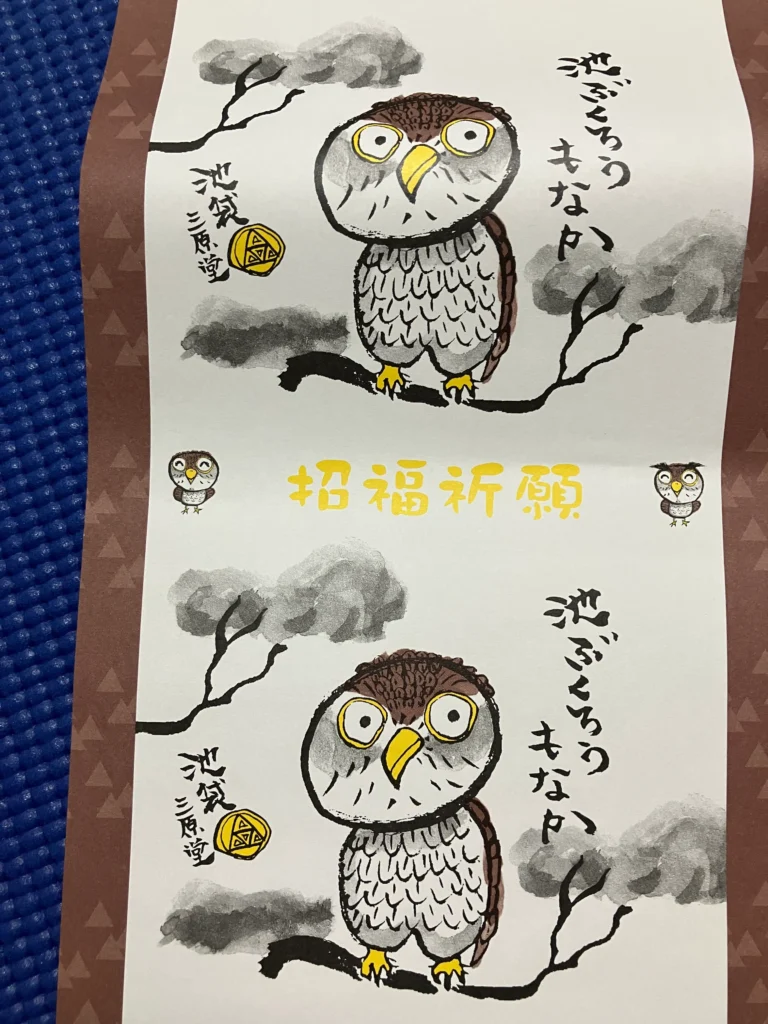 池ぶくろう
もなか
池袋
三原堂
招福祈願
池ぶくろう
もなか
池袋
三原堂